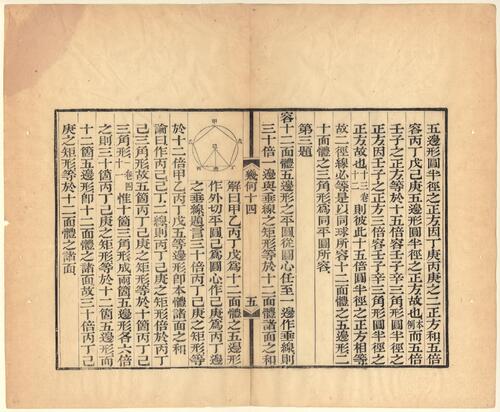 五邊形圜半徑之正方因丁庚丙庚之二正方和五倍
容丙丁戊己庚五邊形圜半徑之正方故也本例而五倍
壬子之正方等於十五倍容壬子辛三角形圜半徑之
正方因壬子之正方三倍容壬子辛三角形圜半徑之
正方故也十三卷十二則彼此十五倍圜半徑之正方相等
故二徑線必等是以同球所容十二面體之五邊形二
十面體之三角形爲同平圜所容
第三題
容十二面體五邊形之平圜從圜心任至一邊作垂線則
三十倍一邊與垂線之矩形等於十二面體諸面之和
幾何十四
五
甲
乙
戊
己
丙
庚
丁
解曰甲乙丙丁戊爲十二面體之五邊形
作外切平圜己爲圜心作己庚爲丙丁邊
之垂線題言三十倍丙丁己庚之矩形等
於十二倍甲乙丙丁戊五等邊形卽本體諸面之和
論曰作丙己己丁二線則丙丁己庚之矩形倍於丙丁
己三角形故五箇丙丁己庚之矩形等於十箇丙丁己
三角形一卷四一惟十箇三角形成兩箇五邊形各六倍
之則三十箇丙丁己庚之矩形等於十二箇五邊形而
十二箇五邊形卽十二面體之諸面故三十倍丙丁己
庚之矩形等於十二面體之諸面